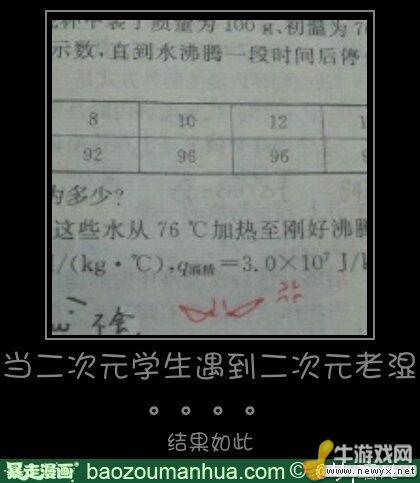 杯中装了质量为100 g、初温为7
示数,直到水沸腾一段时间后停
8 10 12
92 96 96
为多少?
这些水从 76 ℃加热至刚好沸腾
/(kg·℃),q酒精=3.0×10⁷ J/
ω 不会
当二次元学生遇到二次元老湿
。。。。
结果如此
暴走漫画 baozoumanhua.com
牛游戏网
www.newyx.net